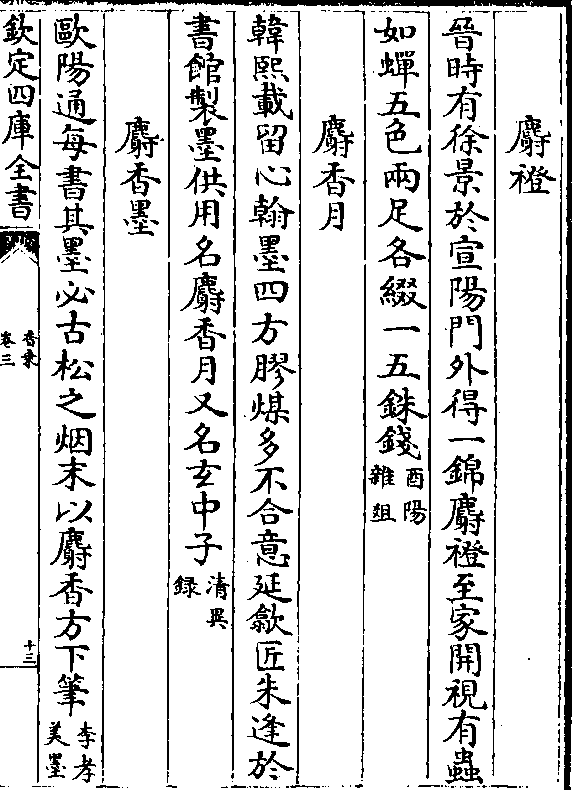 麝䙞
晉時有徐景於宣陽門外得一錦麝䙞至家開視有蟲
如蟬五色兩足各綴一五銖錢酉陽雜俎
麝香月
韓熙載留心翰墨四方膠煤多不合意延歙匠朱逢於
書館製墨供用名麝香月又名玄中子清異録
麝香墨
歐陽通每書其墨必古松之烟末以麝香方下筆李孝美墨
欽定四庫全書
香乘
卷三
十三